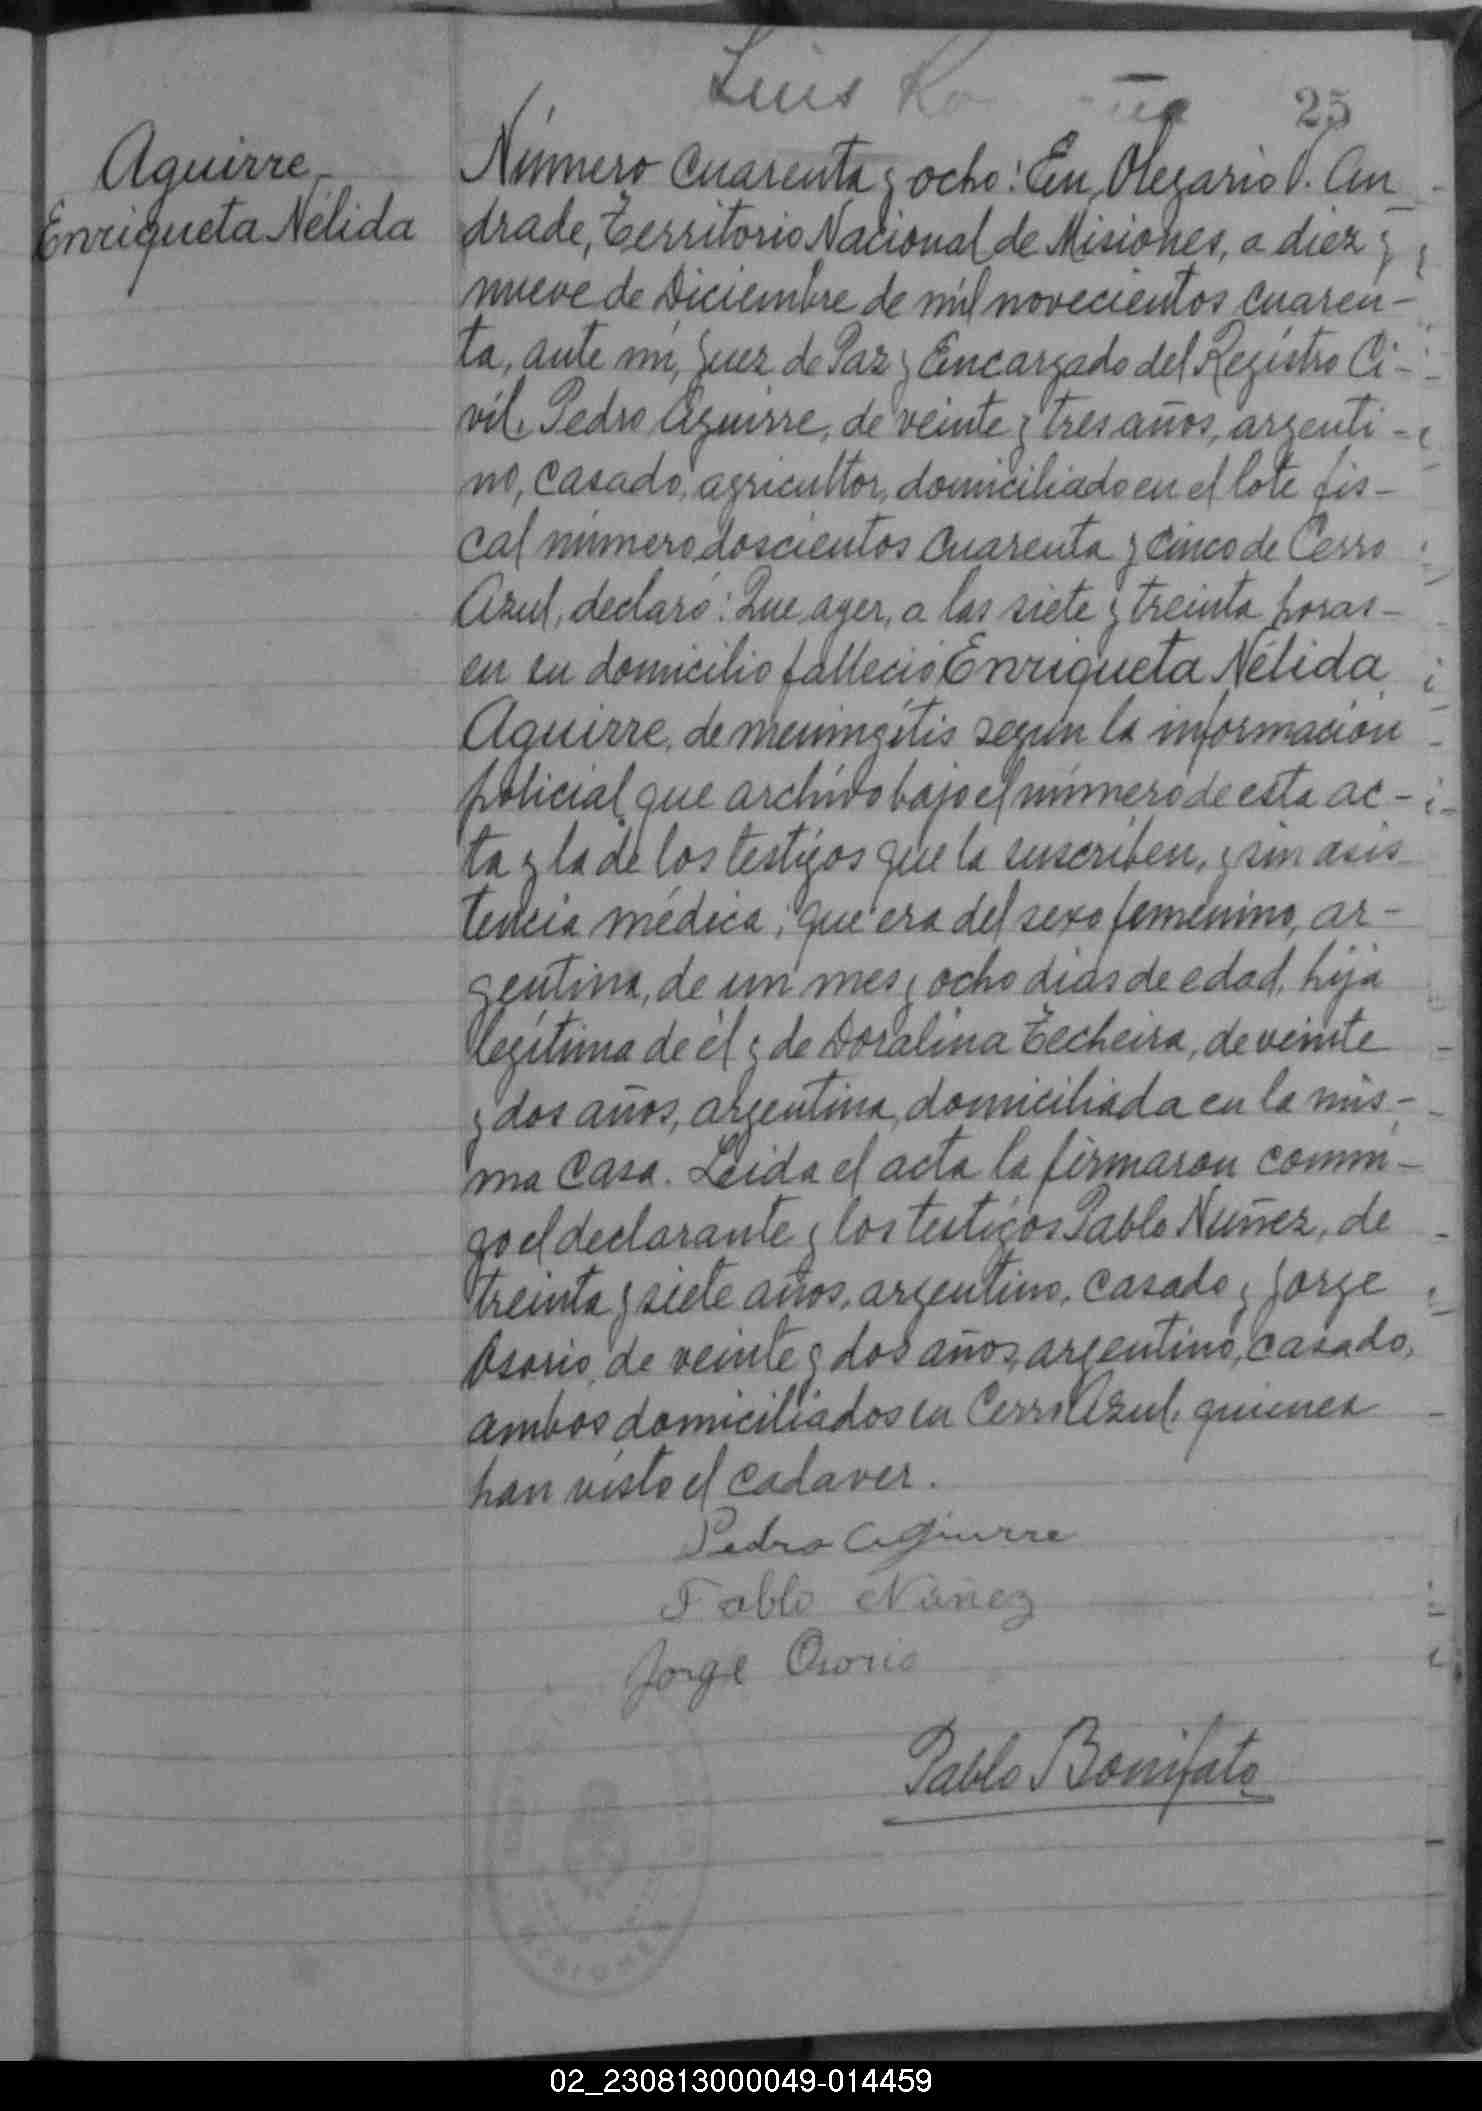 Luis
25
Aguirre
Enriqueta Nélida
Número cuarenta y ocho: En Olegario V. An
drade, Territorio Nacional de Misiones, a diez y
nueve de Diciembre de mil novecientos cuaren-
ta, ante mí, Juez de Paz y Encargado del Registro Ci-
vil, Pedro Aguirre, de veinte y tres años, argenti-
no, casado, agricultor, domiciliado en el lote fis-
cal número doscientos cuarenta y cinco de Cerro
Azul, declaró: Que, ayer, a las siete y treinta horas-
en su domicilio falleció Enriqueta Nélida
Aguirre, de meningitis según la información
policial que archivo bajo el número de esta ac-
ta y la de los testigos que la suscriben, y sin asis
tencia médica; que era del sexo femenino, ar-
gentina, de un mes y ocho dias de edad, hija
legítima de él y de Doralina Techeira, de veinte
y dos años, argentina, domiciliada en la mis-
ma casa. Leida el acta la firmaron conmi-
go el declarante y los testigos Pablo Nuñez, de
treinta y siete años, argentino, casado y Jorge
Osorio, de veinte y dos años, argentino, casado,
ambos domiciliados en Cerro Azul, quienes
han visto el cadaver.
Pedro Aguirre
Pablo Núñez
Jorge Osorio
Pablo Bonifato
MISIONES
02_230813000049-014459